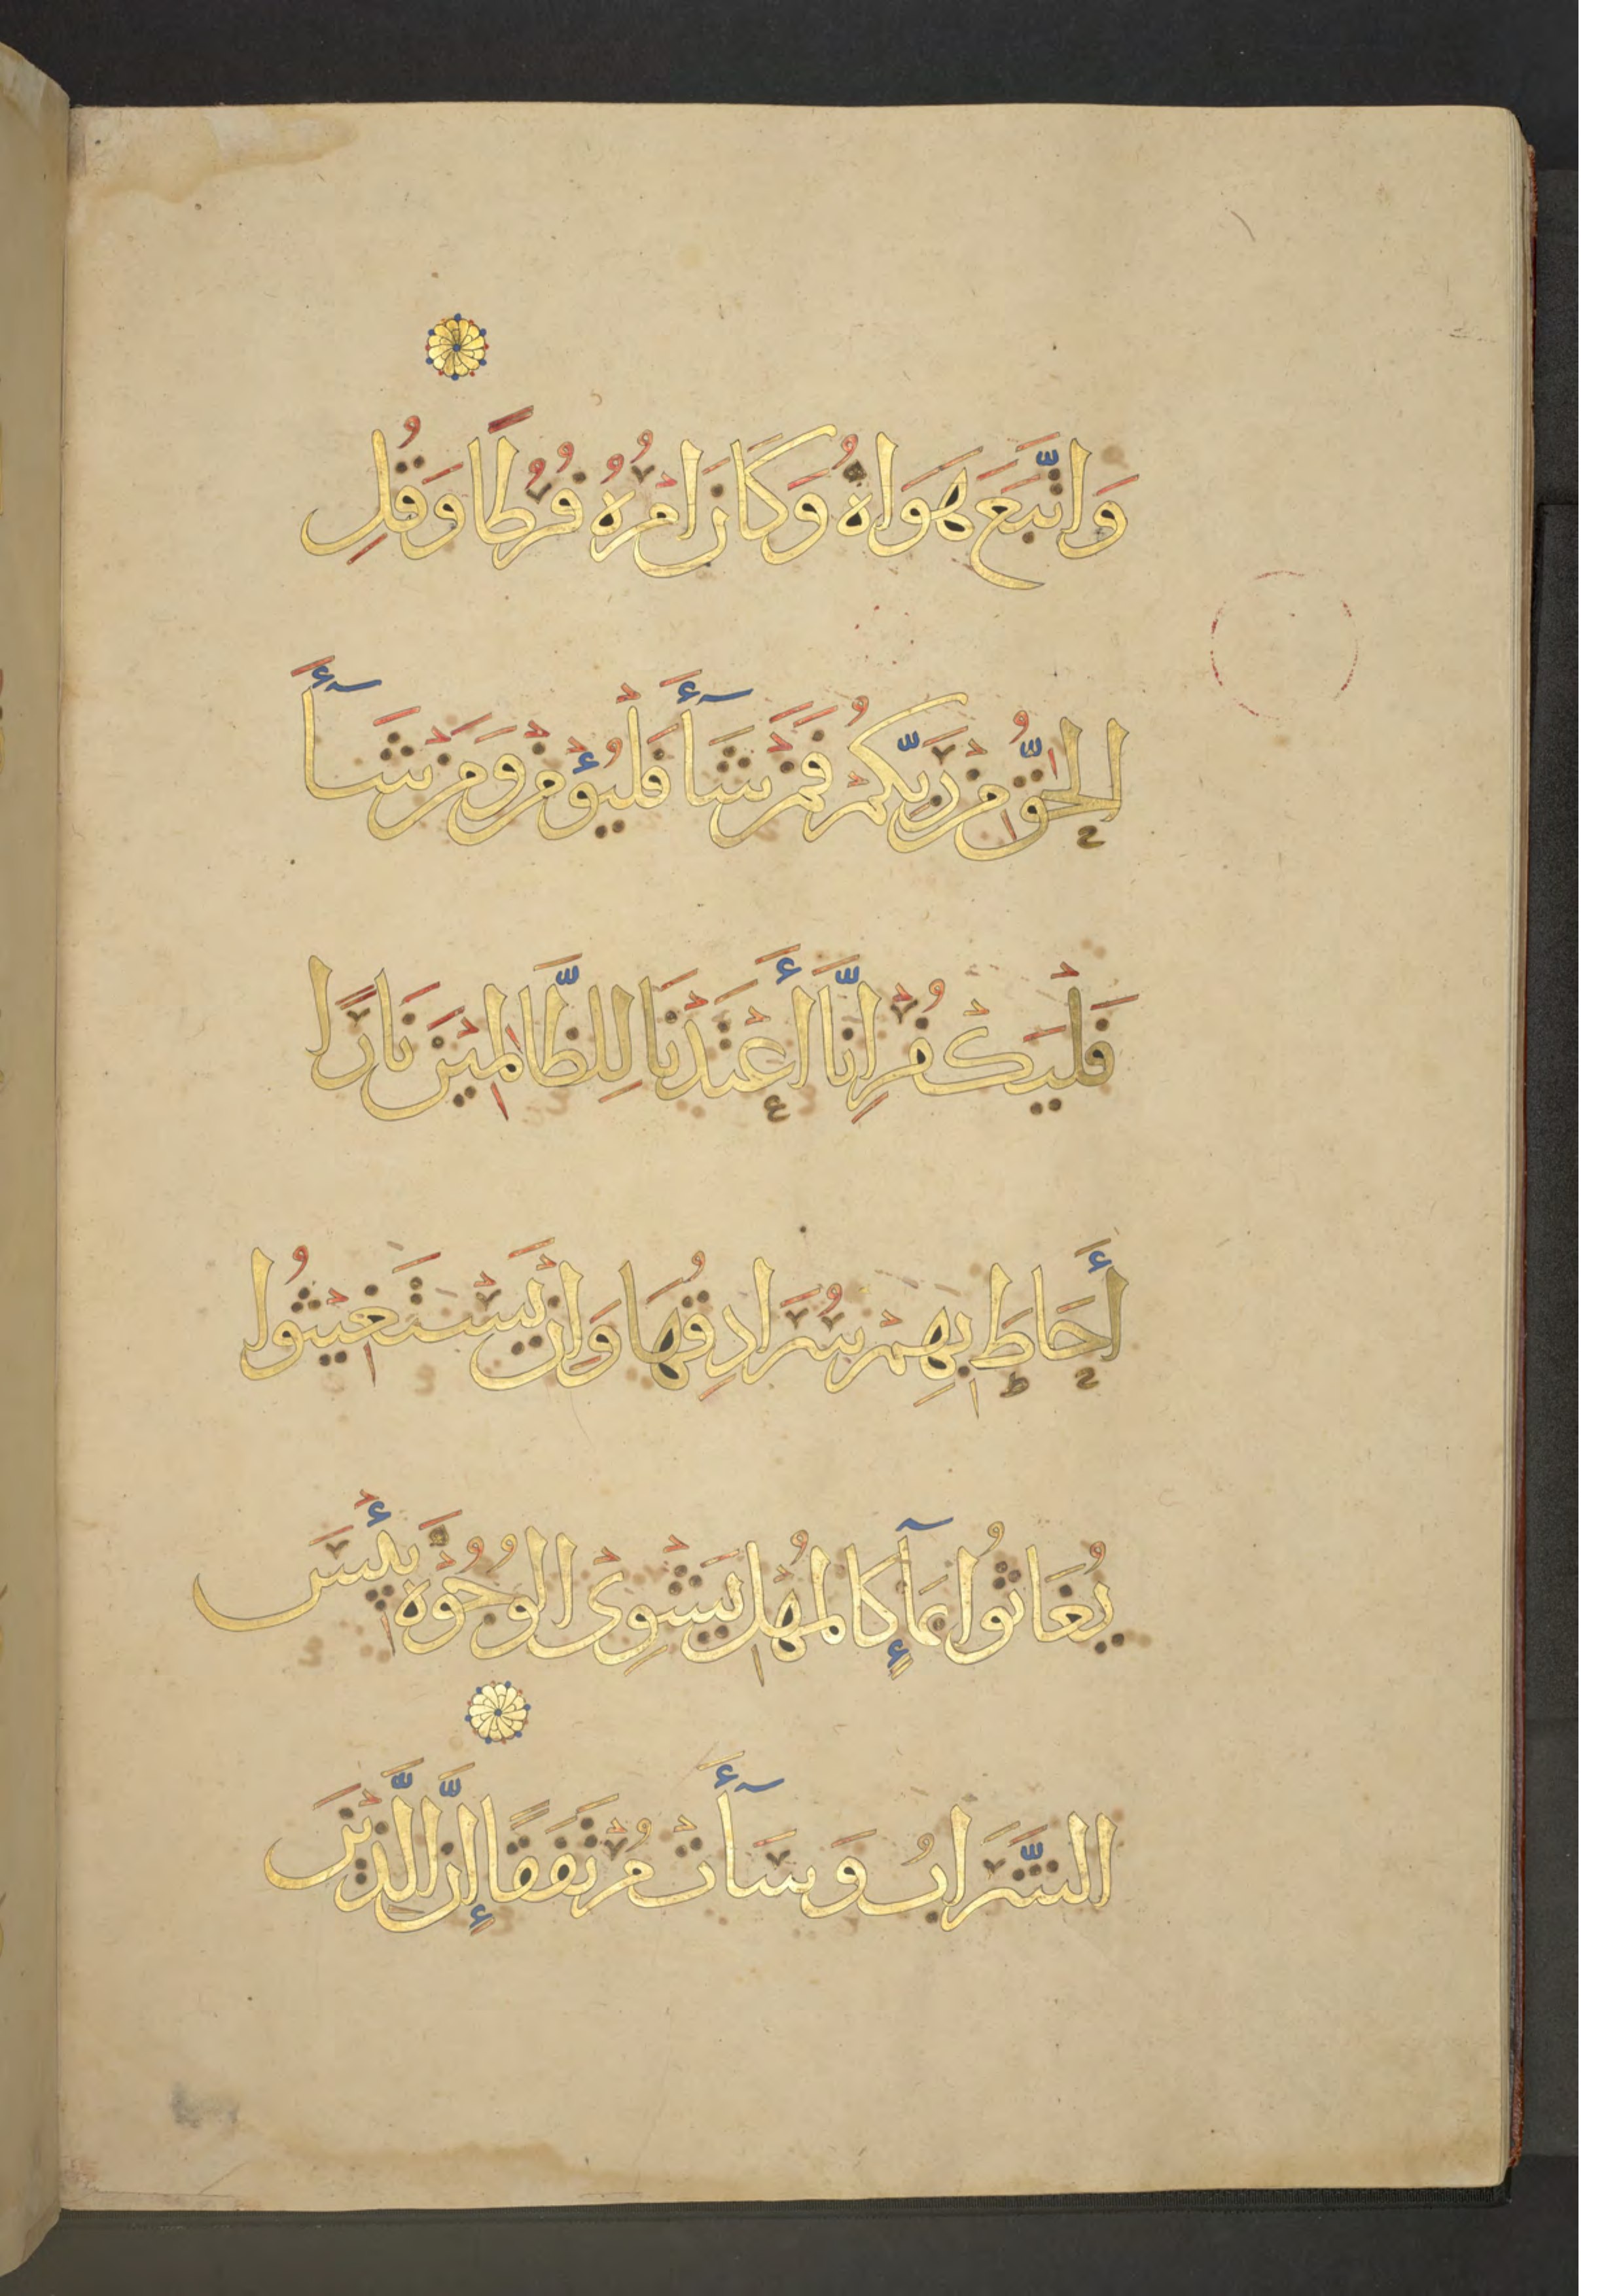 وَاتَّبَعَ هَوَاهُ وَكَانَ اَمْرُهُ فُرُطًا وَقُلِ
الْحَقُّ مِنْ رَبِّكُمْ فَمَنْ شَآأَ فَلْيُؤْمِنْ وَمَنْ شَآأَ
فَلْيَكْفُرْ اِنَّا أَعْتَدْنَا لِلظَّالِمِيْنَ نَارًا
أَحَاطَ بِهِمْ سُرَادِقُهَا وَاِنْ يَسْتَغِيْثُوا
يُغَاثُوا بِمَآإٍ كَالْمُهْلِ يَشْوِى الْوُجُوْهَ بِئْسَ
الشَّرَابُ وَسَآأَتْ مُرْتَفَقًا إِنَّ الَّذِيْنَ